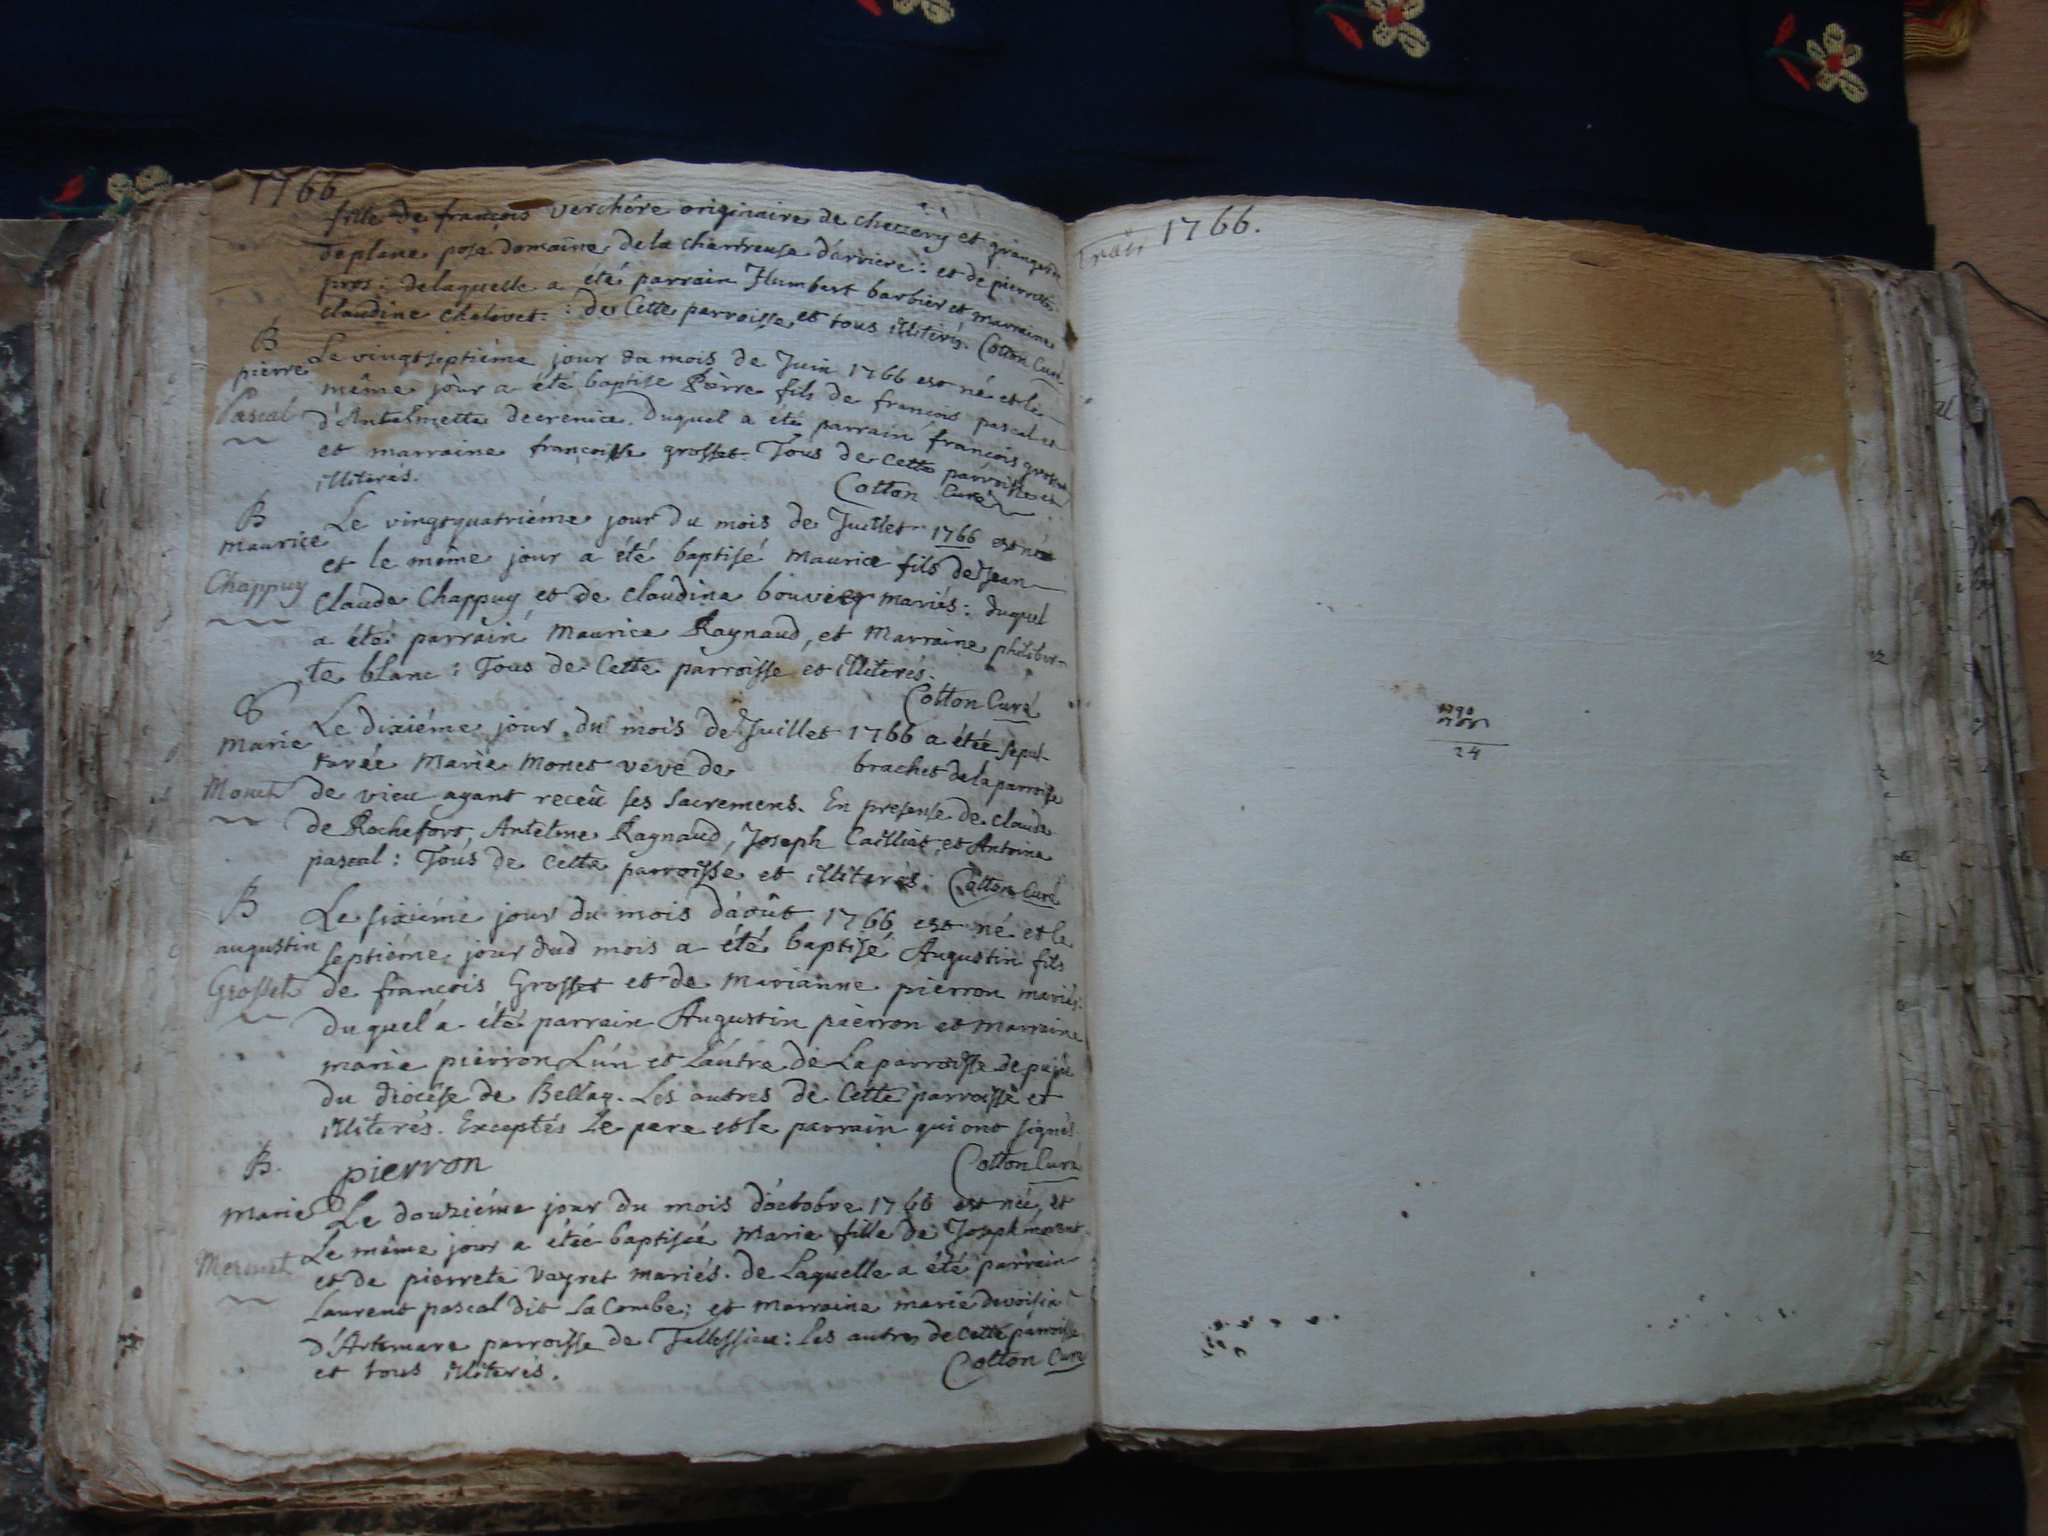 1766
fille de françois verchére originaire de chezzery et granger de
de plane posa domaine de la chartreuse d'arviere: et de pierrette
pros: delaquelle a été parrain Humbert barbier et marraine
claudine chalovet: de Cette parroisse et tous illiterés. Cotton Curé
B
pierre
Pascal
Le vingtseptiéme jour du mois de Juin 1766 est né et le
même jour a été baptise Pierre fils de françois pascal et
d'Antelmette decrenice. Duquel a été parrain françois grosset
et marraine françoisse grosset. Tous de Cette parroisse et
illiterés.
Cotton Curé
B
maurice
Chappuy
Le vingtquatriéme jour du mois de Juillet 1766 est né
et le même jour a été baptisé maurice fils de Jean
Claude Chappuy et de claudine bouvier mariés: duquel
a été parrain maurice Raynaud, et marraine philiber-
te blanc: Tous de Cette parroisse et illiterés.
Cotton Curé
S
marie
Monet
Le dixiéme jour du mois de Juillet 1766 a étée sepul-
turée Marie Monet veve de brachet de la parroisse
de vieu ayant receû ses sacremens. En presense de claude
de Rochefort, Antelme Raynaud, Joseph Cailliat, et Antoine
pascal: Tous de Cette parroisse et illiterés. Cotton Curé
B
augustin
Grosset
Le sixiéme jour du mois d'août 1766 est né et le
septiéme jour dud mois a été baptisé Augustin fils
de françois Grosset et de marianne pierron mariés.
duquel a été parrain Augustin pierron et marraine
marie pierron L'un et L'autre de La parroisse de
du diocése de Bellay. Les autres de Cette parroisse et
illiterés. Exceptés Le pere et le parrain qui ont signés.
pierron
Cotton Curé
B.
marie
Mermet
Le douziéme jour du mois d'octobre 1766 est née et
Le même jour a étée baptisée Marie fille de Joseph
et de pierrete Vayret mariés. de Laquelle a été parrain
Laurent pascal dit La Combe; et marraine marie devoisin
d'Artemare parroisse de Tallissieu: Les autres de cette parroisse
et tous illiterés.
Cotton Curé
1766.
24